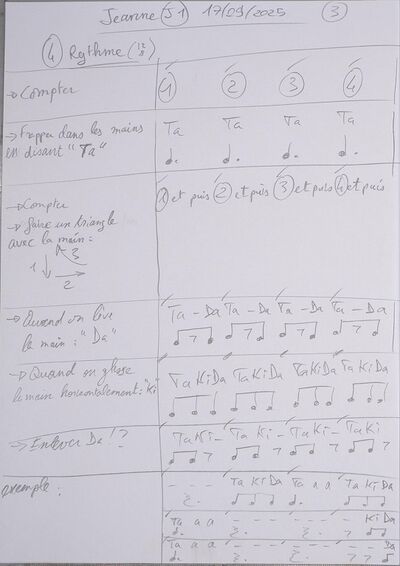 Jeanine J1 17/09/2025 3
4 Rythme (12/8)
→ Compter 1 2 3 4
→ frapper dans les mains Ta Ta Ta Ta
en disant "Ta"
→ Compter 1 et puis 2 et puis 3 et puis 4 et puis
→ faire un triangle
avec la main :
1 2 3
→ Quand on lève Ta - Da Ta - Da Ta - Da Ta - Da
la main : "Da"
→ Quand on glisse Ta Ki Da Ta Ki Da Ta Ki Da Ta Ki Da
la main horizontalement : "Ki"
→ Enlever Da !? Ta Ki - Ta Ki - Ta Ki - Ta Ki
exemple : - - - Ta Ki Da Ta a a Ta Ki Da
Ta a a - - - - - - - Ki Da
Ta a a - - - - - - - - Da